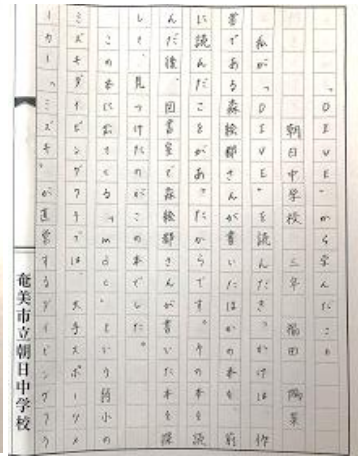 「DIVE」から学んだこと
朝日中学校 三年 福田 陽菜
私が、「DIVE」を読んだきっかけは、作
者である森絵都さんが書いたほかの本を前
に読んだことがあったからです。その本を読
んだ後、図書室で森絵都さんが書いた本を探
して、見つけたのがこの本でした。
この本に出てくる、という弱小の
ミズキダイビングクラブは、大手スポーツメ
ーカー「ミズキ」が直営するダイビングクラブ
奄美市立朝日中学校